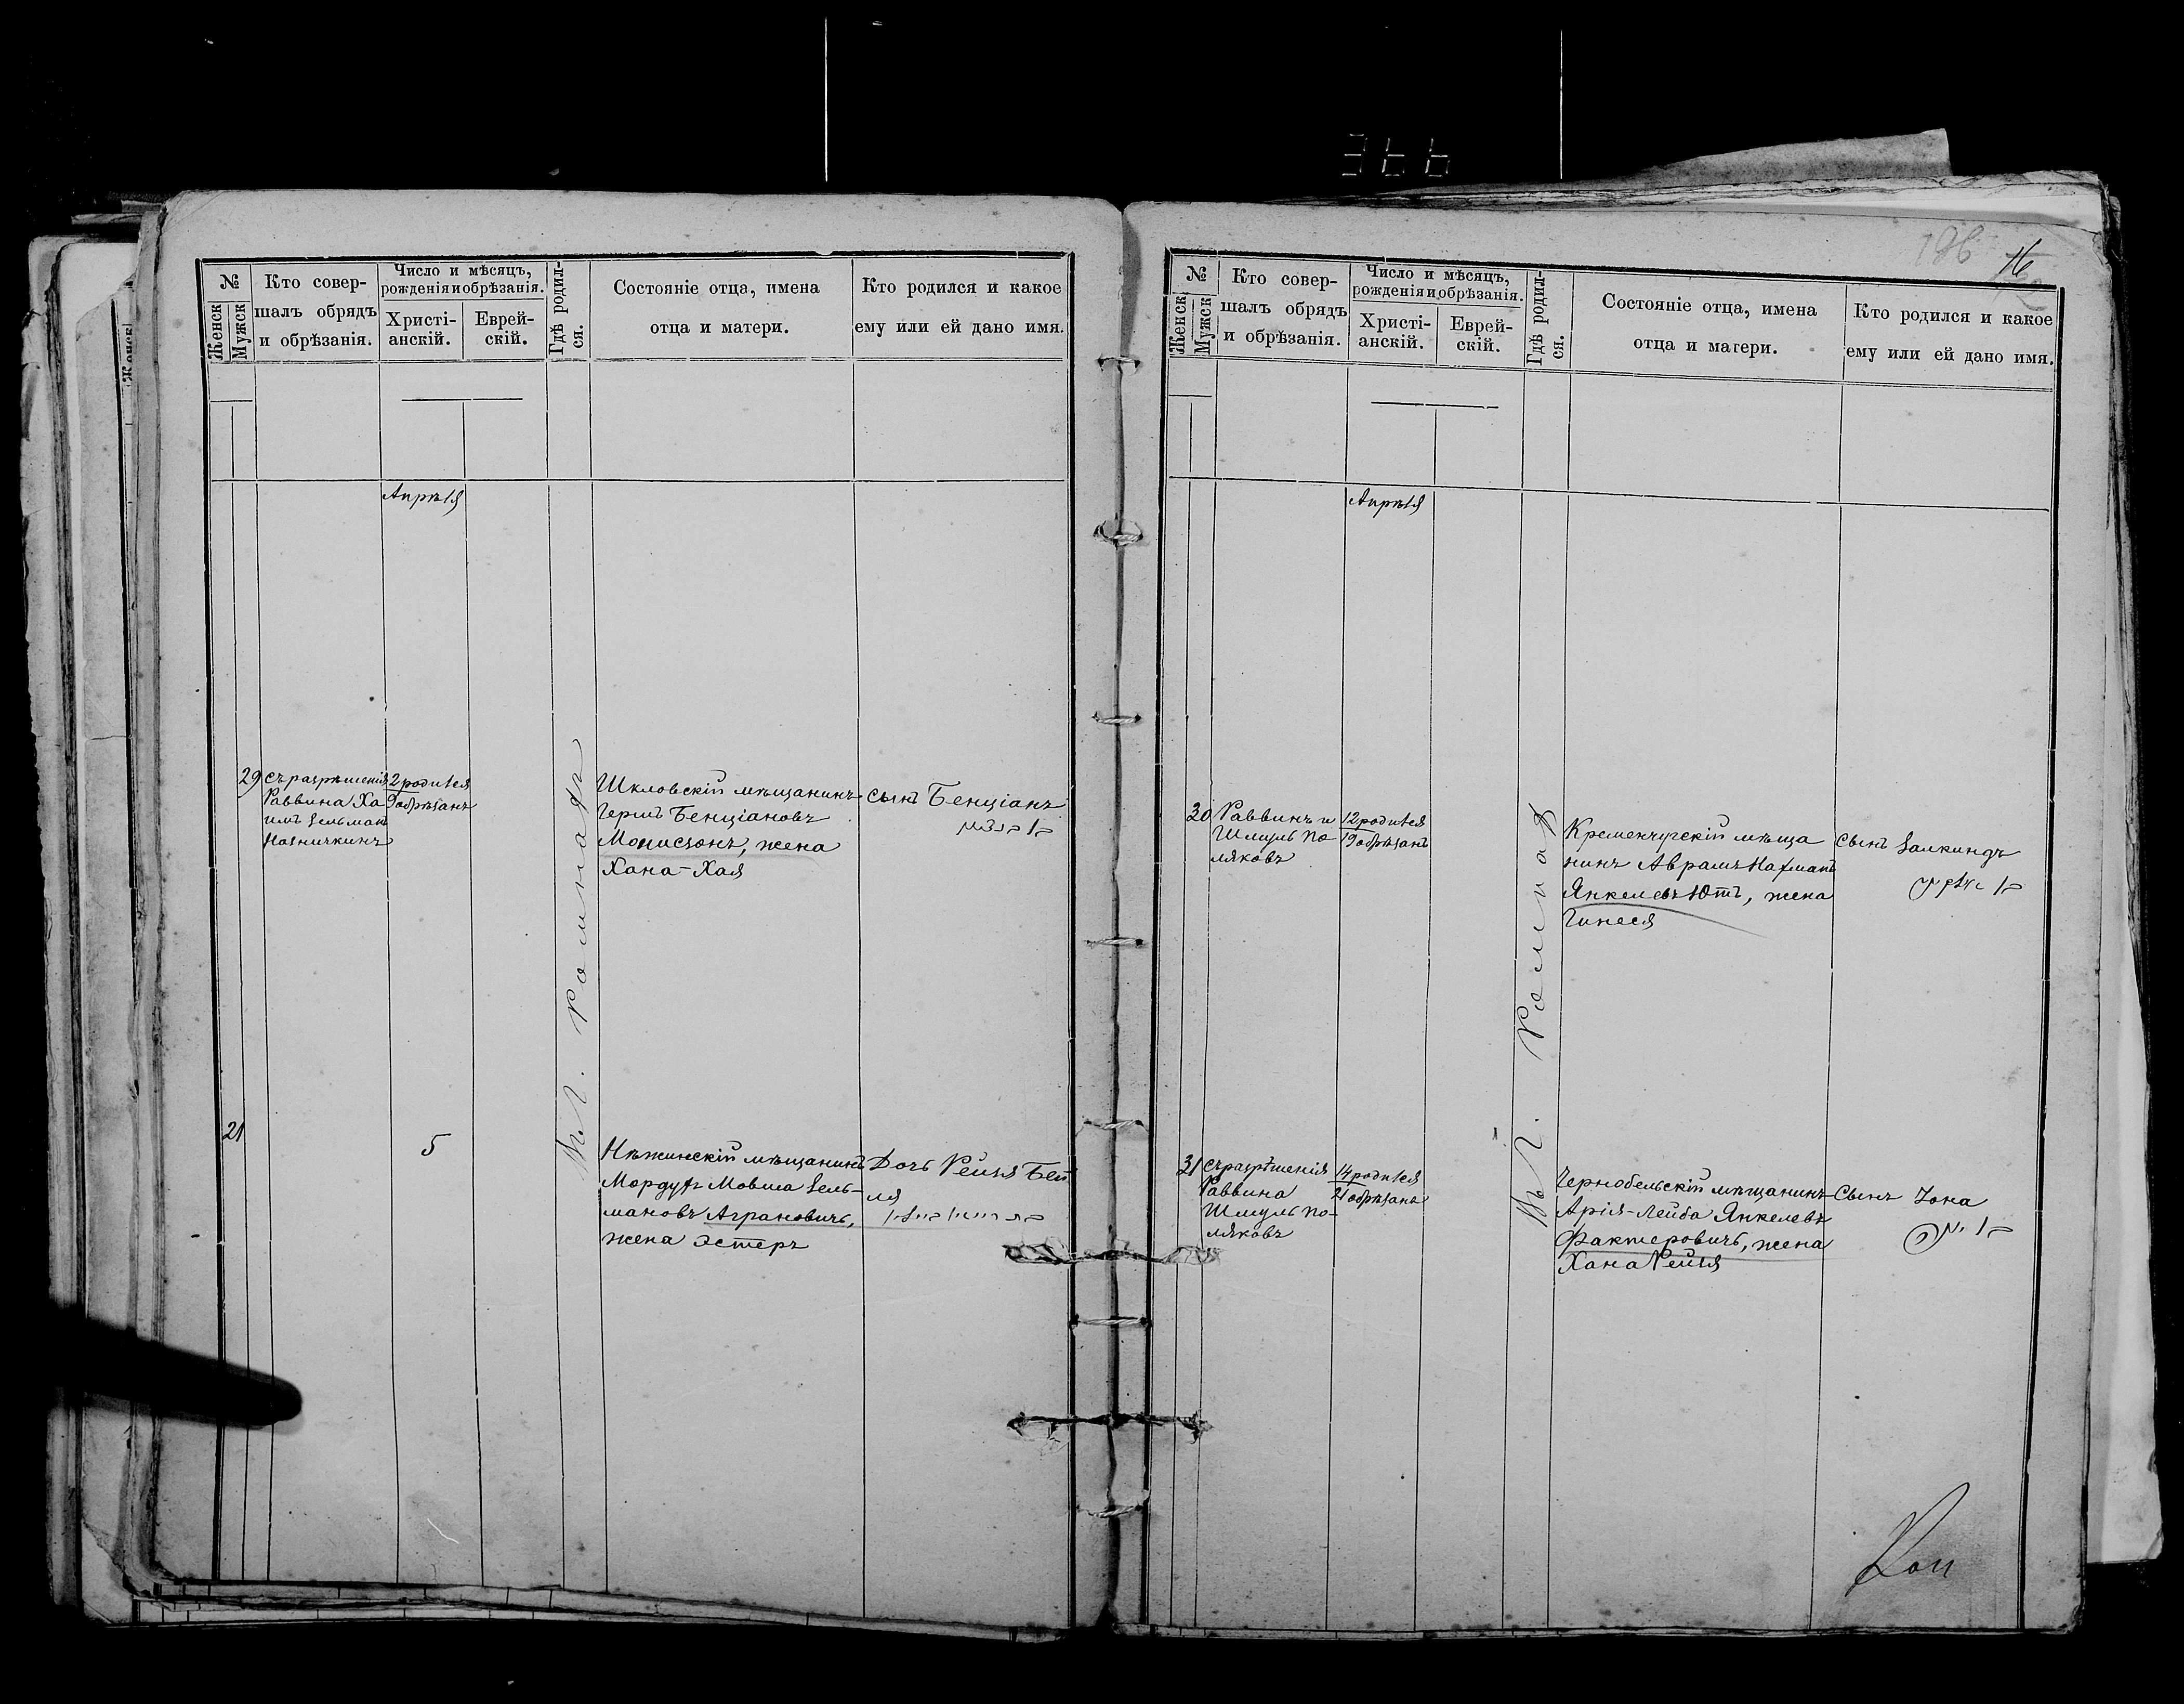 366
№
Женск
Мужск
Кто совер-
шалъ обрядъ
и обрѣзанія.
Число и мѣсяцъ,
рожденія и обрѣзанія.
Христі-
анскій.
Еврей-
скій.
Гдѣ родил-
ся.
Состояніе отца, имена
отца и матери.
Кто родился и какое
ему или ей дано имя.
Апрѣля
29
съ разрѣшенія
Раввина Ха
имъ Зельман
2 родился
9 обрѣзанъ
Шкловскій мѣщанинъ
Герш Бенціановъ
Монисзонъ, жена
Хана-Хая
сынъ Бенціанъ
בן בנציון
въ г. Ромнахъ
21
5
Нѣжинскій мѣщанинъ
Мордухъ Мовша Зель-
мановъ Аграновичъ,
жена Эстеръ
Дочь Рейзя Бей
ля
בת רייזי ביילי
196
16
№
Женск
Мужск
Кто совер-
шалъ обрядъ
и обрѣзанія.
Число и мѣсяцъ,
рожденія и обрѣзанія.
Христі-
анскій.
Еврей-
скій.
Гдѣ родил-
ся.
Состояніе отца, имена
отца и матери.
Кто родился и какое
ему или ей дано имя.
Апрѣля
30
Раввинъ
Шмуль По-
ляковъ
12 родился
19 обрѣзанъ
Кременчугскій мѣща
нинъ Аврамъ Нахманъ
Янкелевъ Ютъ, жена
Гинеся
сынъ Залкиндъ
въ г. Ромнах
31
съ разрѣшенія
Раввина
Шмуль По-
ляковъ
14 родился
21 обрѣзанъ
Чернобельскій мѣщанинъ
Арія-Лейба Янкелевъ
Фактеровичъ, жена
Хана Рейзя
Сынъ Іона